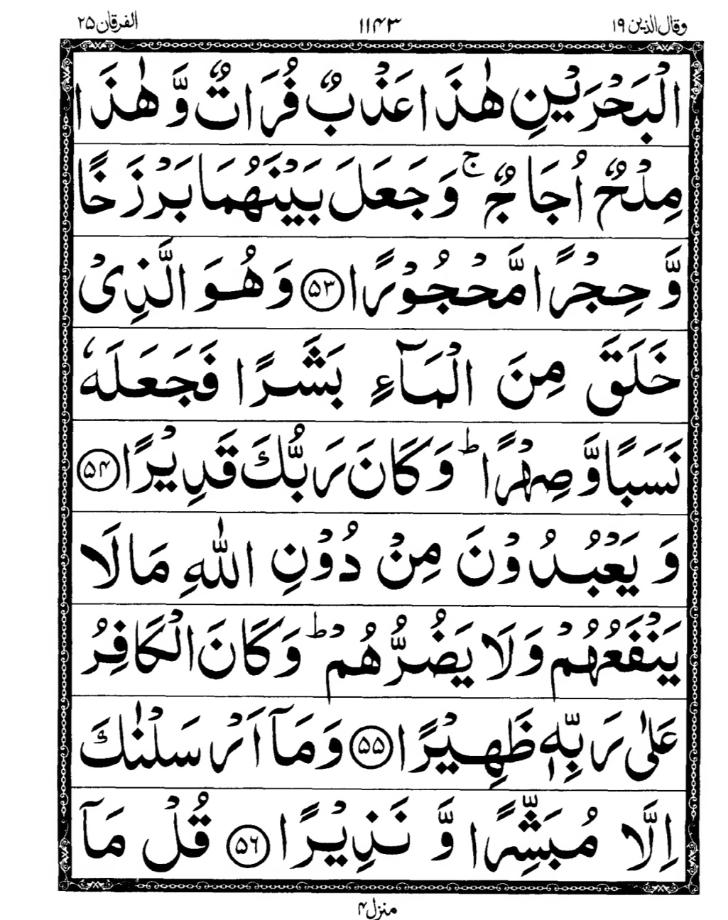 وقال الذین ۱۹ ۱۱۴۳ الفرقان ۲۵
الْبَحْرَیْنِ هٰذَا عَذْبٌ فُرَاتٌ وَّ هٰذَا
مِلْحٌ اُجَاجٌ ۚ وَ جَعَلَ بَیْنَهُمَا بَرْزَخًا
وَّ حِجْرًا مَّحْجُوْرًا ﴿۵۳﴾ وَ هُوَ الَّذِیْ
خَلَقَ مِنَ الْمَآءِ بَشَرًا فَجَعَلَهٗ
نَسَبًا وَّ صِهْرًا ؕ وَ كَانَ رَبُّكَ قَدِیْرًا ﴿۵۴﴾
وَ یَعْبُدُوْنَ مِنْ دُوْنِ اللّٰهِ مَا لَا
یَنْفَعُهُمْ وَ لَا یَضُرُّهُمْ ؕ وَ كَانَ الْكَافِرُ
عَلٰی رَبِّهٖ ظَهِیْرًا ﴿۵۵﴾ وَ مَاۤ اَرْسَلْنٰكَ
اِلَّا مُبَشِّرًا وَّ نَذِیْرًا ﴿۵۶﴾ قُلْ مَاۤ
منزل ۴